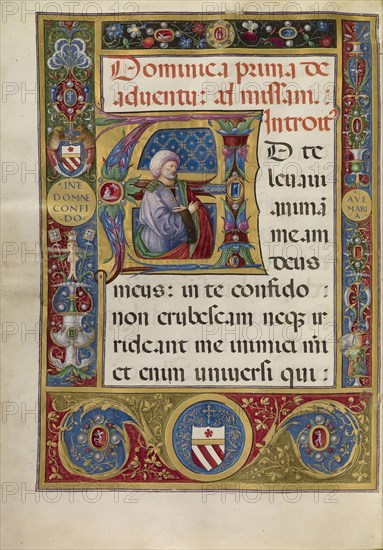 Dominica prima de
adventu: ad missam.
Introit
AD te
levavi
animã
meam
deus
meus: in te confido
non erubescam neq3 ir
rideant me inimici mi
et enim universi qui:
·IN E
DOMNE
CONFI
DO·
AVE
MARI
A
PHOTO12